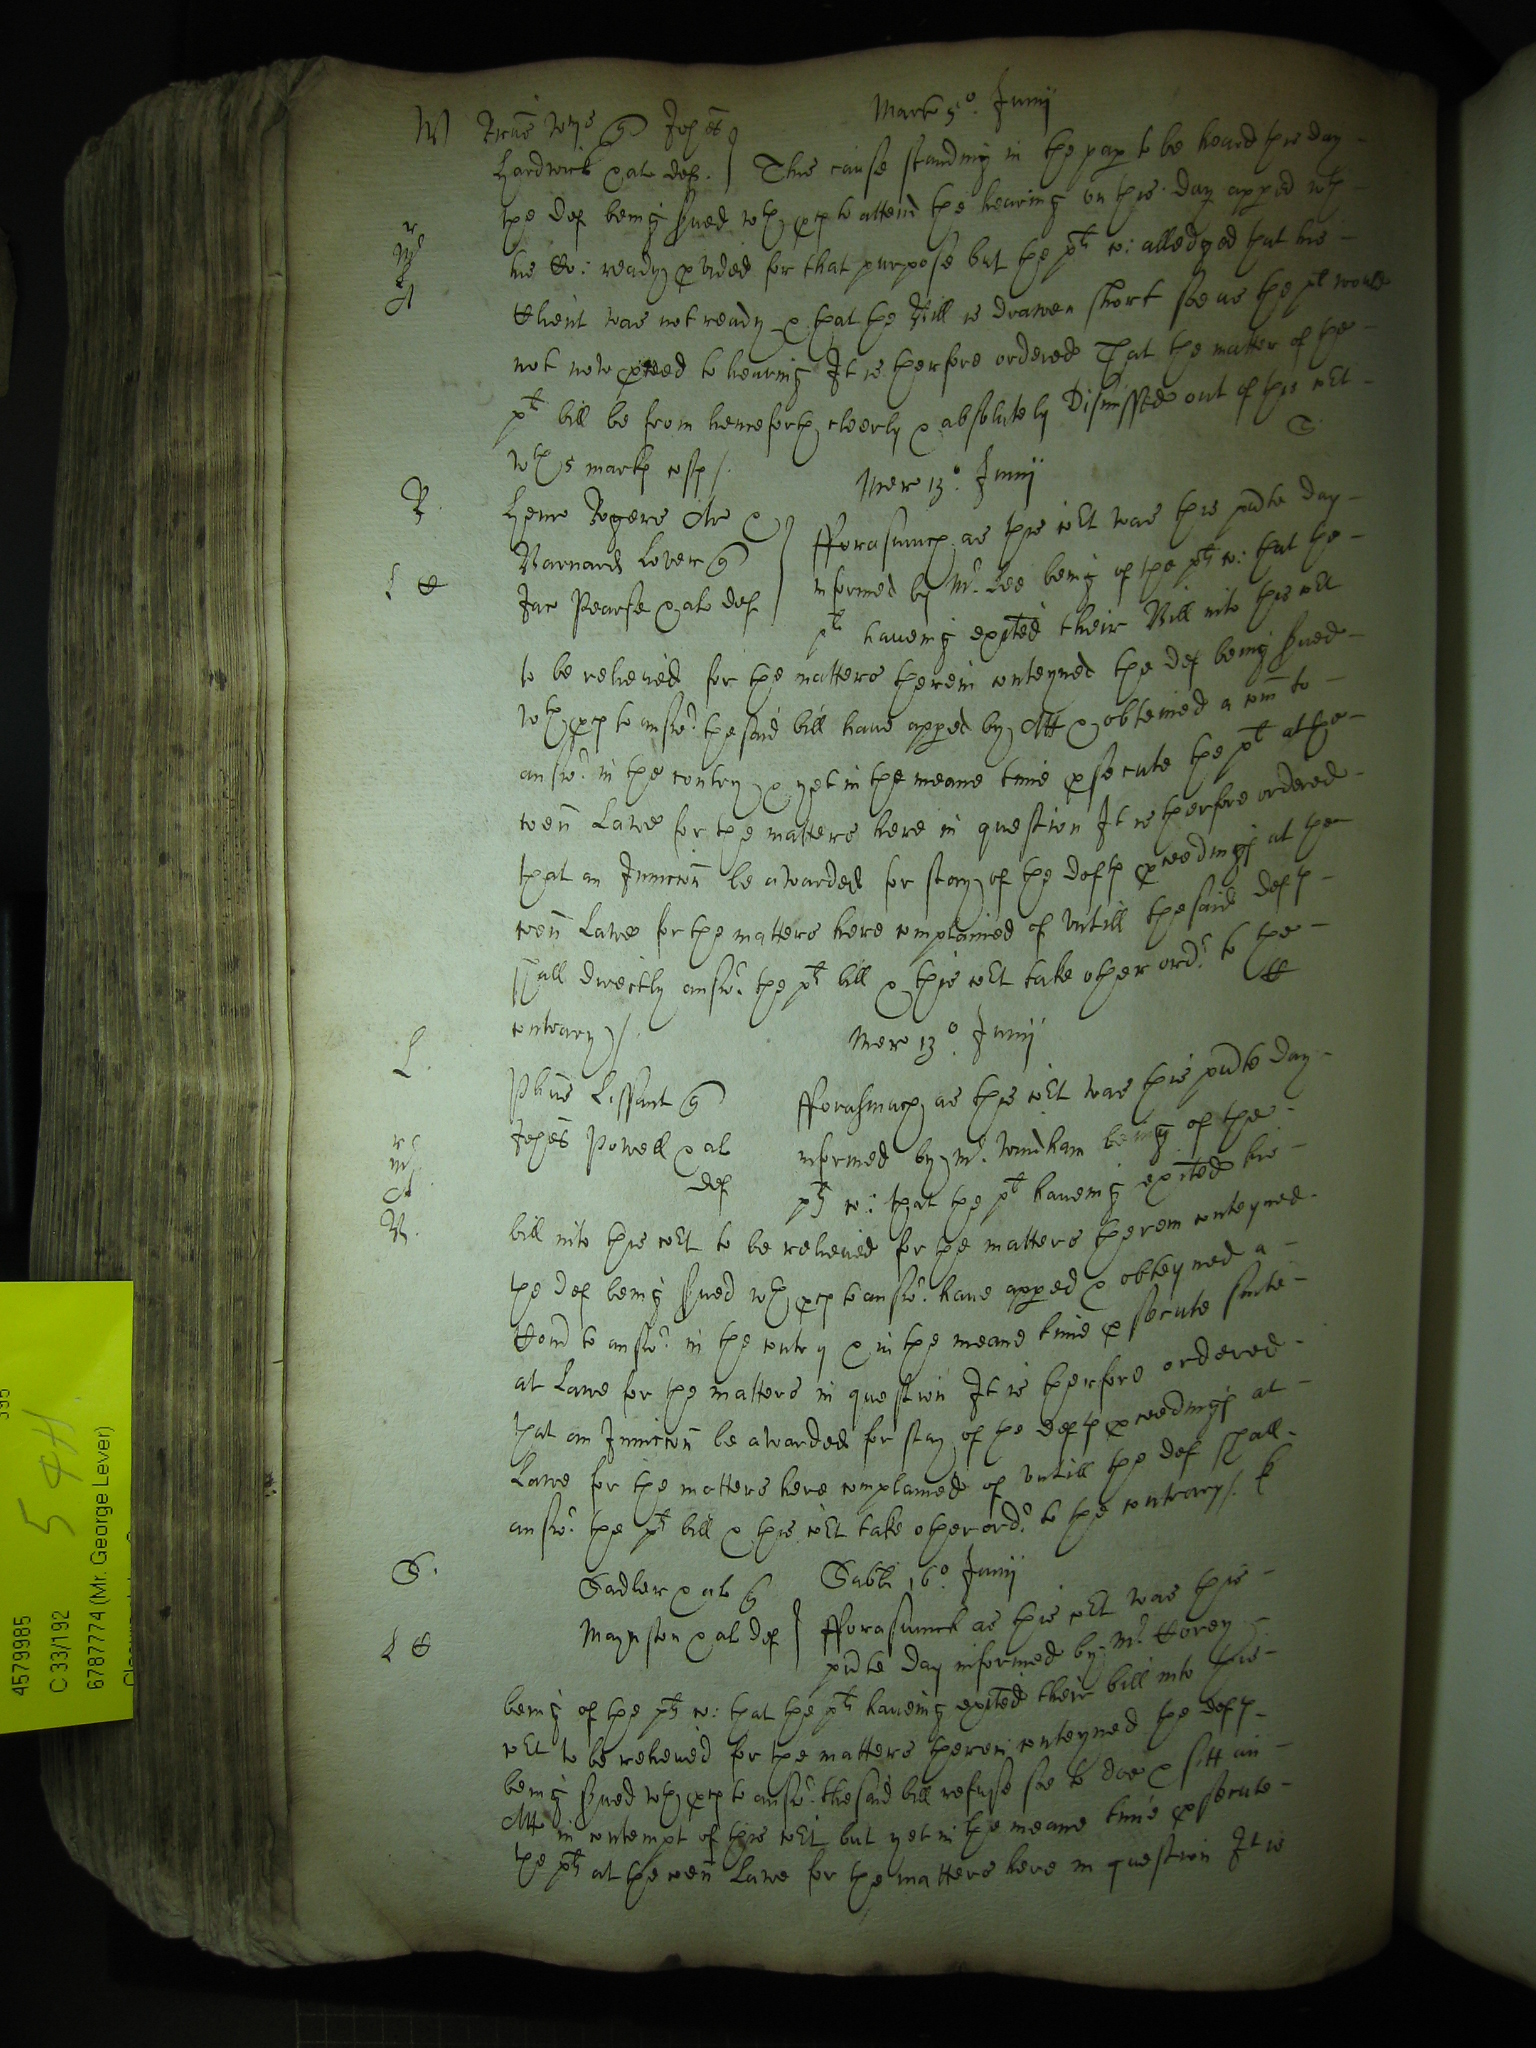 W Ricūs Wms q Johēs
Marti 5º. Junij
Hardwick & al def. } This cause standing in the pap to be heard this day
the def being sued wth pces to attend the hearing on this day apped wth
his Co: ready pvided for that purpose but the plt co: alledged that his
Client was not ready & that the Bill is drawen short soe as the plt would
not now pceed to hearing It is therfore ordered That the matter of the
plt bill be from henceforth cleerly & absolutely dismissed out of this cort
wth 5 marks costs/.
Mer 13º. Junij
R. Henr Rogers Ar &
Barnard Lover q } fforasmuch as this cort was this pnte day
L C Jac Pearse & als def informed by Mr. Lee being of the plts co: that the
plts haveing exited their Bill into this cort
to be releived for the matters therein conteyned the def being sued
wth pces to answr. the said bill have apped by Att & obteined a com to
answr. in the contry & yet in the meane time psecute the plt at the
coen Lawe for the matters here in question It is therfore ordered
that an Iniuncon be awarded for stay of the defts pceedings at the
coen Lawe for the matters here complained of untill the said defts
shall directly answr. the plts bill & this cort take other ordr. to the
contrary/.
Mer 13º. Junij
L. Phūs Lissant q
fforasmuch as this cort was this pnte day
Johēs Powell & al
informed by Mr. Windham being of the
def
plts co: that the plt haveing exited his
bill into this cort to be releived for the matters therein conteyned
the def being sued wth pces to answr. have apped & obteyned a
Com to answr. in the contry & in the meane time psecute suite
at Lawe for the matters in question It is therfore ordered
that an Iniuncon be awarded for stay of the defts pceedings at
Lawe for the matters here complained of untill the def shall
answr. the plts bill & this cort take other ordr. to the contrary/.
Sabti 16º. Junij
S. Sadler & al q
L C Maynston & al def } fforasmuch as this cort was this
pnte day informed by Mr.
being of the plts co: that the plts haveing exited their bill into this
cort to be releived for the matters therein conteyned the defts
being sued wth pces to answr. the said bill refuse soe to doe & sitt an
Atto in contempt of this cort but yet in the meane time psecute
the plts at the coen Lawe for the matters here in question It is
54H.
4579985
C 33/192
6787774 (Mr. George Lever)